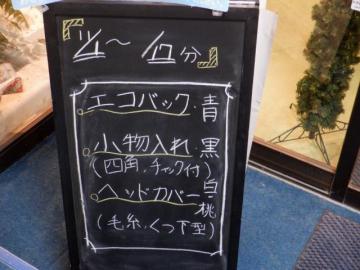 『11/1〜11/17分』
エコバック・青
小物入れ・黒
(四角,チャック付)
ヘッドカバー白・桃
(毛糸,くつ下型)